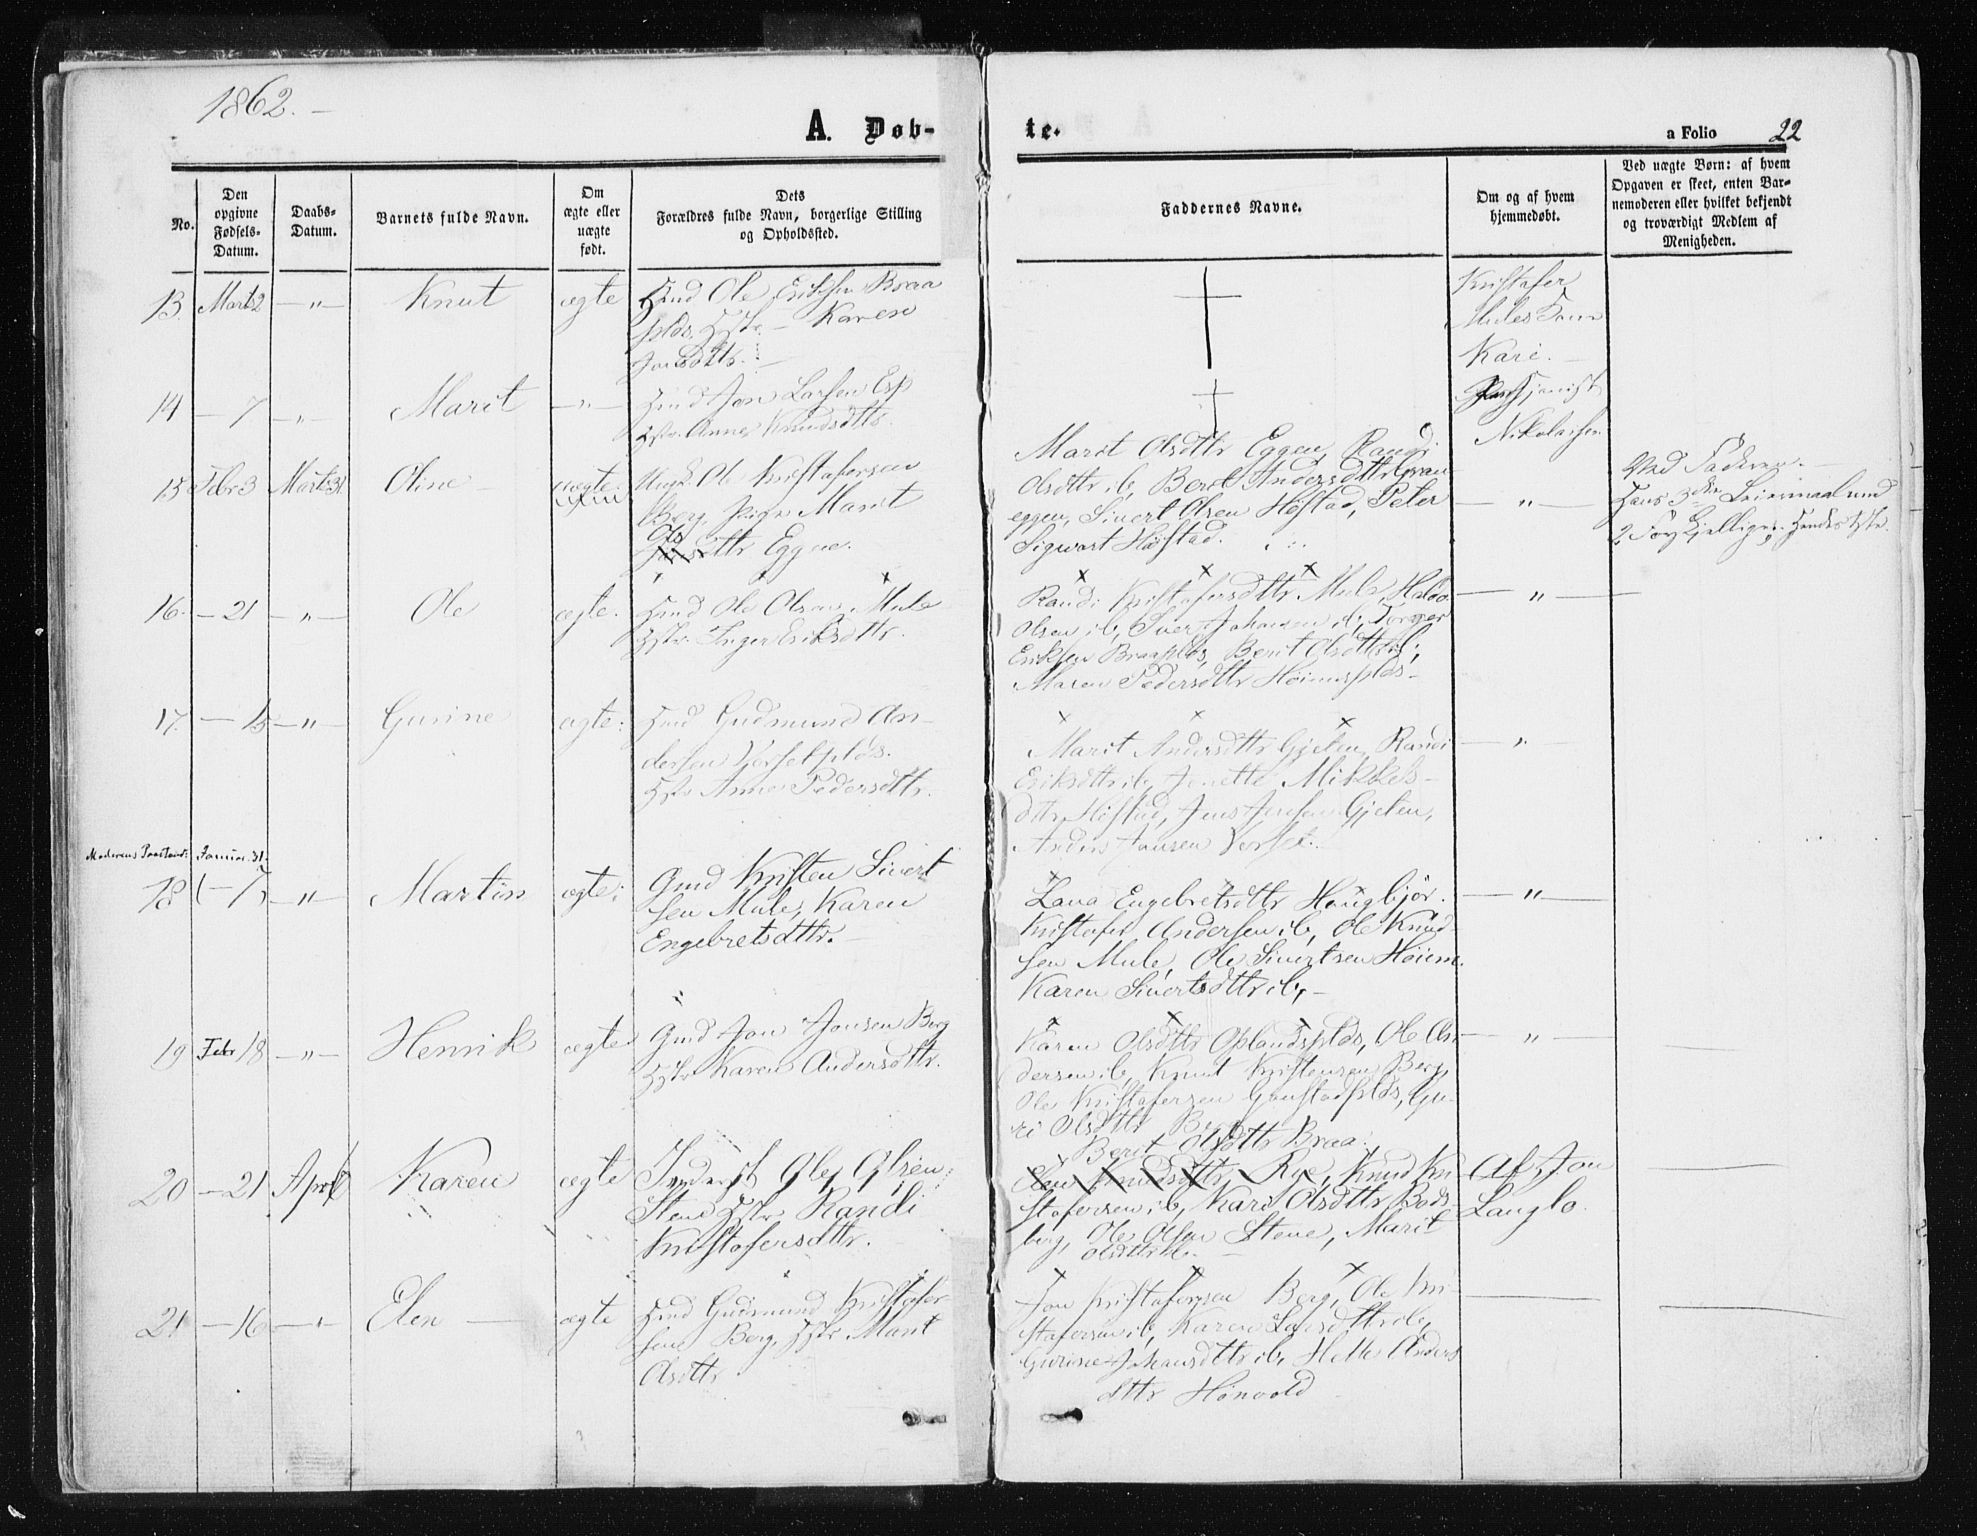 1862. –
A. Døb-
te.
a Folio 22
No.
Den opgivne Fødsels-Datum.
Daabs-Datum.
Barnets fulde Navn.
Om ægte eller uægte født.
Dets Forældres fulde Navn, borgerlige Stilling og Opholdssted.
Faddernes Navne.
Om og af hvem hjemmedøbt.
Ved uægte Børn: af hvem Opgaven er skeet, enten Barnemoderen eller hvilket bekjendt og troværdigt Medlem af Menigheden.
13. Marts 2 – " – Knut ægte Hmd Ole Eriksen Braa
plds, Hstr. – Karen
Jonsdttr. –
Kristofer
Mules
Kari. –
14 – 7 – " – Marit – " – Hmd Jon Larsen Esp
Hstr. Anne Knudsdttr.
Nikolaisen
15 Febr 3 Marts 31 Oline – uægte Ungk. Ole Kristofersen
Berg, Pige Marit
Ols
dttr Eggen.
Marit Olsdttr Eggen, Randi
Olsdttr ib, Berit Andersdttr Gran
eggen, Sivert Olsen Høstad, Peter
Sigvart Høstad.
– " –
Ved Faderen. –
Hans 3die Leiermaal med
16. – 21 – " – Ole ægte. Hmd Ole Olsen Mule
Hstr. Inger Eriksdttr.
Randi Kristofersdttr Mule, Haldo
Olsen ib, Iver Johansen ib,
Eriksen Braaplds, Berit Olsdttr ib,
Maren Pedersdttr Høiemsplds –
– " –
17. – 15 – " – Gurine ægte: Hmd Gudmund An-
dersen Vorsetplds.
Hstr Anne Pedersdttr.
Marit Andersdttr Gjeten, Randi
Eriksdttr ib, Jonette Mikkels-
dttr Høstad, Jens Jensen Gjeten,
Anders Jonsen Vorset.
– " –
Moderens Paastand: Januar. 31.
18 (– 7) – " – Martin ægte; Gmd Kristen Sivert
sen Mule, Karen
Engebretsdttr. –
Lava Engebretsdttr Haugbjør.
Kristofer Andersen ib, Ole Knud
sen Mule, Ole Sivertsen Høiem.
Karen Sivertsdttr ib, –
– " –
19 Febr 18 – " – Henrik ægte Gmd Jon Jonsen Berg
Hstr Karen Andersdttr.
Karen Olsdttr Oplandsplds, Ole An
dersen ib, Knut Kristensen Berg,
Ole Kristofersen Gaustadplds, Gu-
ri Olsdttr Berg
– " –
20 – 21 April Karen ægte Inderst Ole Olsen
Stene Hstr Randi
Kristofersdttr.
Berit Olsdttr Braa.
Knudsdttr, Rye, Knud Kri
stofersen ib, Kari Olsdttr Bads
berg, Ole Olsen Stene, Marit
Olsdttr ib. –
Af Jon
Langlo.
21 – 16 – " – Elen – ægte Hmd Gudmund Kristofer
sen Berg, Hstr Marit
Olsdttr
Jon Kristofersen Berg, Ole Kri
stofersen ib, Karen Larsdttr ib,
Gurine Johansdttr ib, Helle Anders
dttr Hønvold